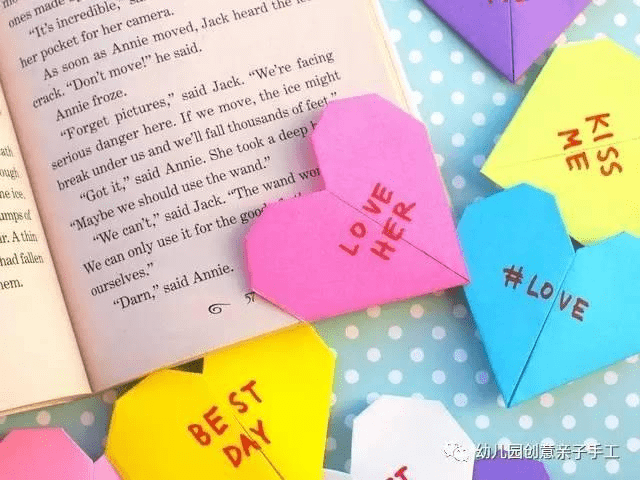 "It's incredible,"
her pocket for her camera.
As soon as Annie moved, Jack heard the
crack. "Don't move!" he said.
Annie froze.
"Forget pictures," said Jack. "We're facing
serious danger here. If we move, the ice might
break under us and we'll fall thousands of feet."
"Got it," said Annie. She took a deep
"Maybe we should use the wand."
"We can't," said Jack. "The wand
We can only use it for the good
ourselves."
"Darn," said Annie.
57
ice.
A thin
had fallen
LOVE
HER
KISS
ME
#LOVE
BEST
DAY
幼儿园创意亲子手工